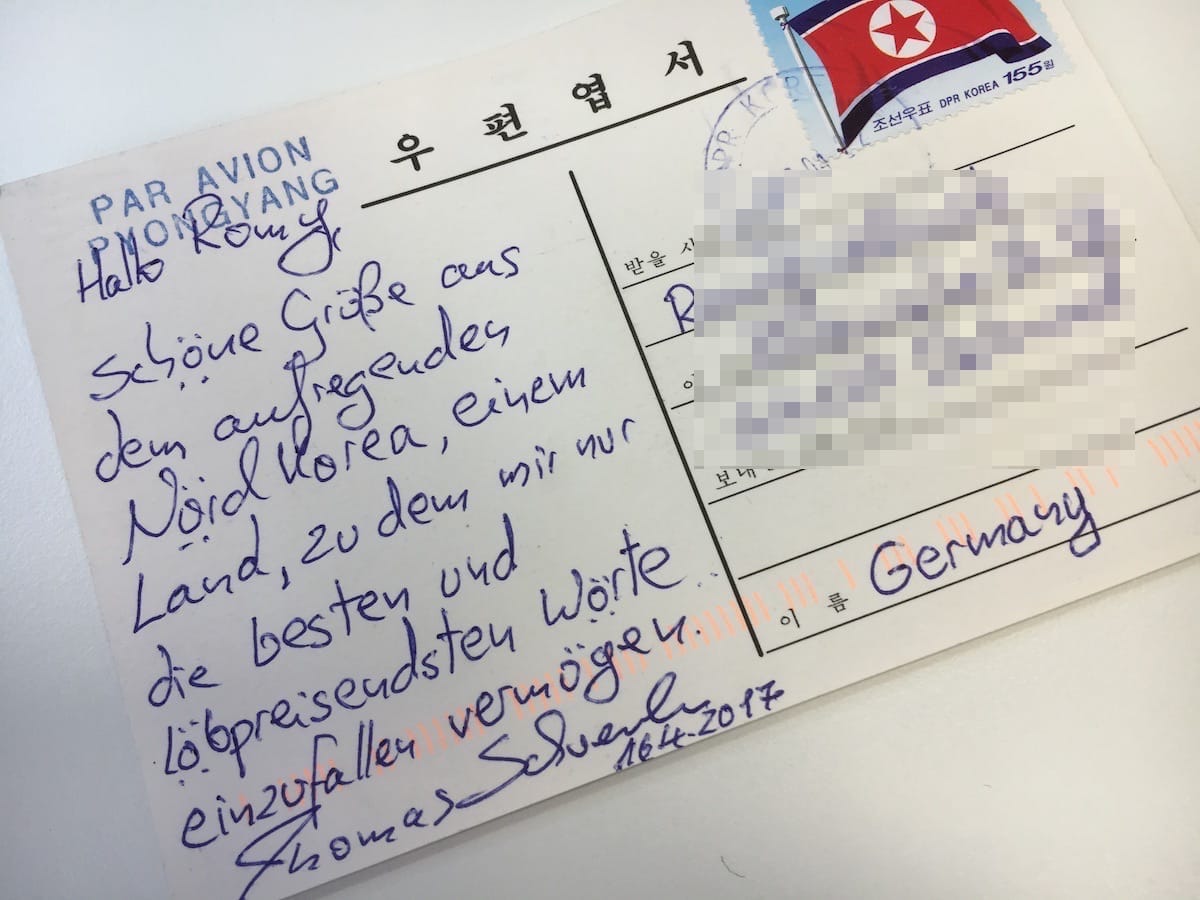 우편엽서
조선우표 DPR KOREA 155원
PAR AVION
PYONGYANG
Hallo Romy,
schöne Größe aus
dem aufregenden
Nörd Korea, einem
Land, zu dem mir nur
die besten und
löbpreisendsten Wörte
einzufallen vermögen.
Thomas
16.4.2017
DPR KOR
받을 사
R
보내
이 름 Germany